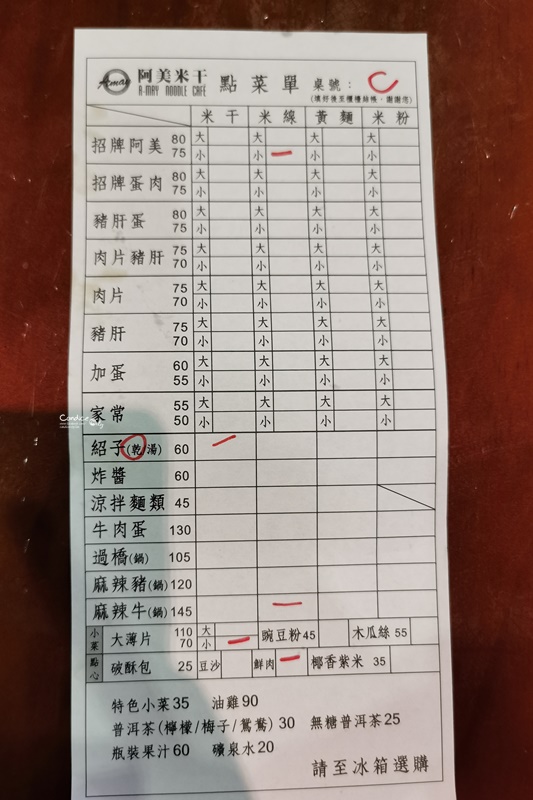 Amay 阿美米干 點菜單 桌號：C
A-MAY NOODLE CAFÉ (填好後至櫃檯結帳，謝謝您)
米干 米線 黃麵 米粉
招牌阿美 80 大 大 大 大
75 小 小 小 小
招牌蛋肉 80 大 大 大 大
75 小 小 小 小
豬肝蛋 80 大 大 大 大
75 小 小 小 小
肉片豬肝 75 大 大 大 大
70 小 小 小 小
肉片 75 大 大 大 大
70 小 小 小 小
豬肝 75 大 大 大 大
70 小 小 小 小
加蛋 60 大 大 大 大
55 小 小 小 小
家常 55 大 大 大 大
50 小 小 小 小
紹子(乾/湯) 60
炸醬 60
涼拌麵類 45
牛肉蛋 130
過橋(鍋) 105
麻辣豬(鍋) 120
麻辣牛(鍋) 145
小菜 大薄片 110 大 豌豆粉45 木瓜絲 55
70 小
點心 破酥包 25 豆沙 鮮肉 椰香紫米 35
特色小菜35 油雞90
普洱茶(檸檬/梅子/鴛鴦) 30 無糖普洱茶25
瓶裝果汁60 礦泉水20
請至冰箱選購